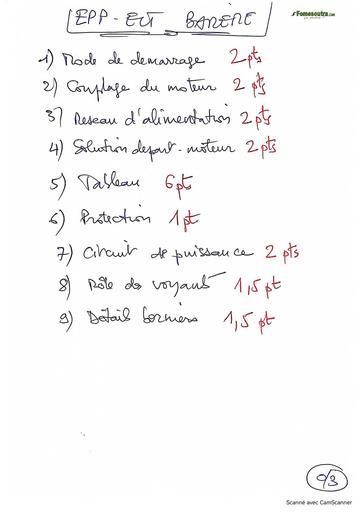 EPP - ELT BARÈME
Fomesoutra.com
1) Mode de demarrage 2 pts
2) Couplage du moteur 2 pts
3) Reseau d'alimentation 2 pts
4) Solution depart-moteur 2 pts
5) Tableau 6 pt
6) Protection 1 pt
7) Circuit de puissance 2 pts
8) Rôle de voyants 1,5 pt
9) Détails borniers 1,5 pt
Scanné avec CamScanner